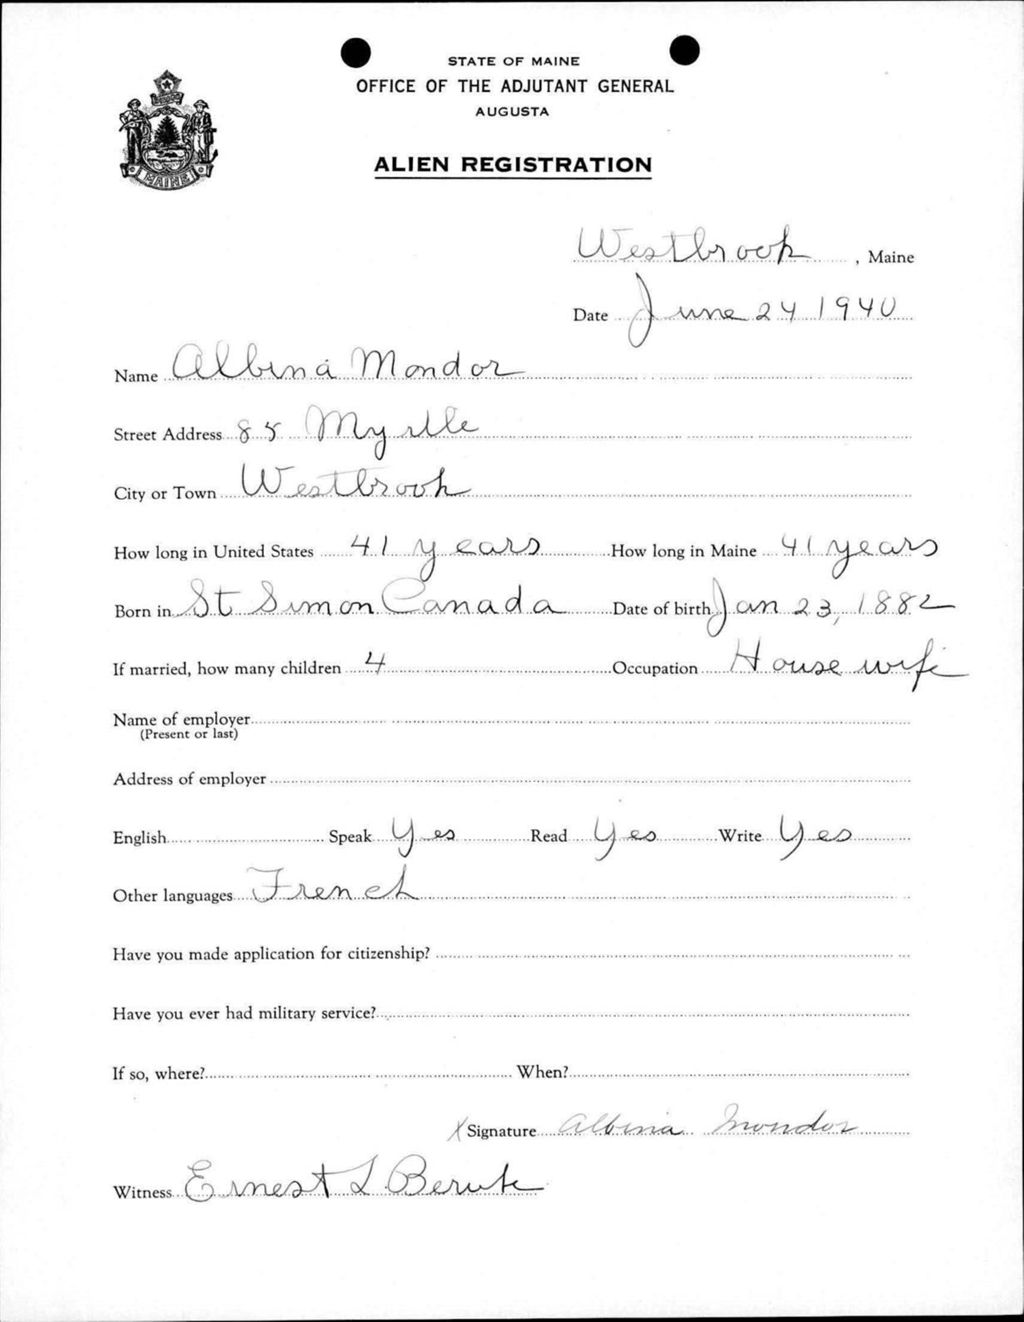 STATE OF MAINE
OFFICE OF THE ADJUTANT GENERAL
AUGUSTA
MAINE
ALIEN REGISTRATION
Westbrook, Maine
Date June 24 1940
Name Albina Mondor
Street Address 85 Myrtle
City or Town Westbrook
How long in United States 41 years How long in Maine 41 years
Born in St Simon Canada Date of birth Jan 23, 1882
If married, how many children 4 Occupation House wife
Name of employer
(Present or last)
Address of employer
English Speak Yes Read Yes Write Yes
Other languages French
Have you made application for citizenship?
Have you ever had military service?
If so, where? When?
X Signature Albina Mondor
Witness Ernest L